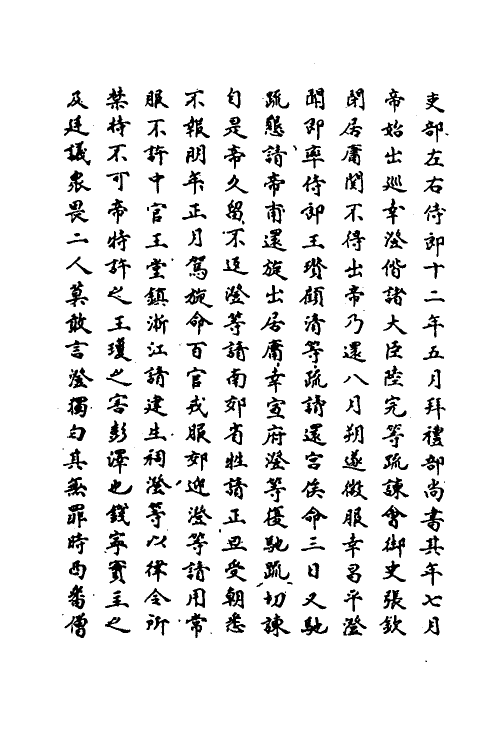 吏部左右侍郎十二年五月拜禮部尚書其年七月
帝始出巡幸澄偕諸大臣陸完等疏諫會御史張欽
閉居庸關不得出帝乃還八月朔遂微服幸昌平澄
聞即率侍郎王瓚顧清等疏請還宮俟命三日又馳
疏懇請帝甫還旋出居庸幸宣府澄等復馳疏切諫
自是帝久留不返澄等請南郊省牲請正旦受朝悉
不報明年正月駕旋命百官戎服郊迎澄等請用常
服不許中官王堂鎮浙江請建生祠澄等以律令所
禁持不可帝特許之王瓊之害彭澤也錢寧實主之
及廷議衆畏二人莫敢言澄獨白其無罪時西番僧